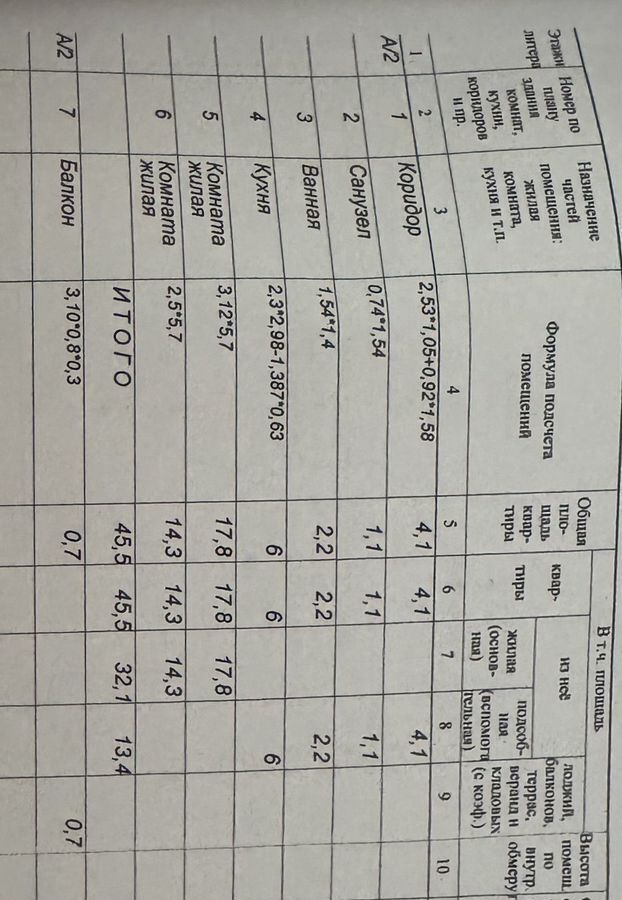 Этажи
литера
Номер по
плану
здания
комнат,
кухни,
коридоров
и пр.
Назначение
частей
помещения:
жилая
комната,
кухня и т.п.
Формула подсчета
помещений
Общая
пло-
щадь
квар-
тиры
В т.ч. площадь
квар-
тиры
из неё
жилая
(основ-
ная)
подсоб-
ная
(вспомога
тельная)
лоджий,
балконов,
террас,
веранд и
кладовых
(с коэф.)
Высота
помещ.
по
внутр.
обмеру
1 2 3 4 5 6 7 8 9 10
А/2 1 Коридор 2,53*1,05+0,92*1,58 4,1 4,1 4,1
2 Санузел 0,74*1,54 1,1 1,1 1,1
3 Ванная 1,54*1,4 2,2 2,2 2,2
4 Кухня 2,3*2,98-1,387*0,63 6 6 6
5 Комната
жилая 3,12*5,7 17,8 17,8 17,8
6 Комната
жилая 2,5*5,7 14,3 14,3 14,3
ИТОГО 45,5 45,5 32,1 13,4
А/2 7 Балкон 3,10*0,8*0,3 0,7 0,7